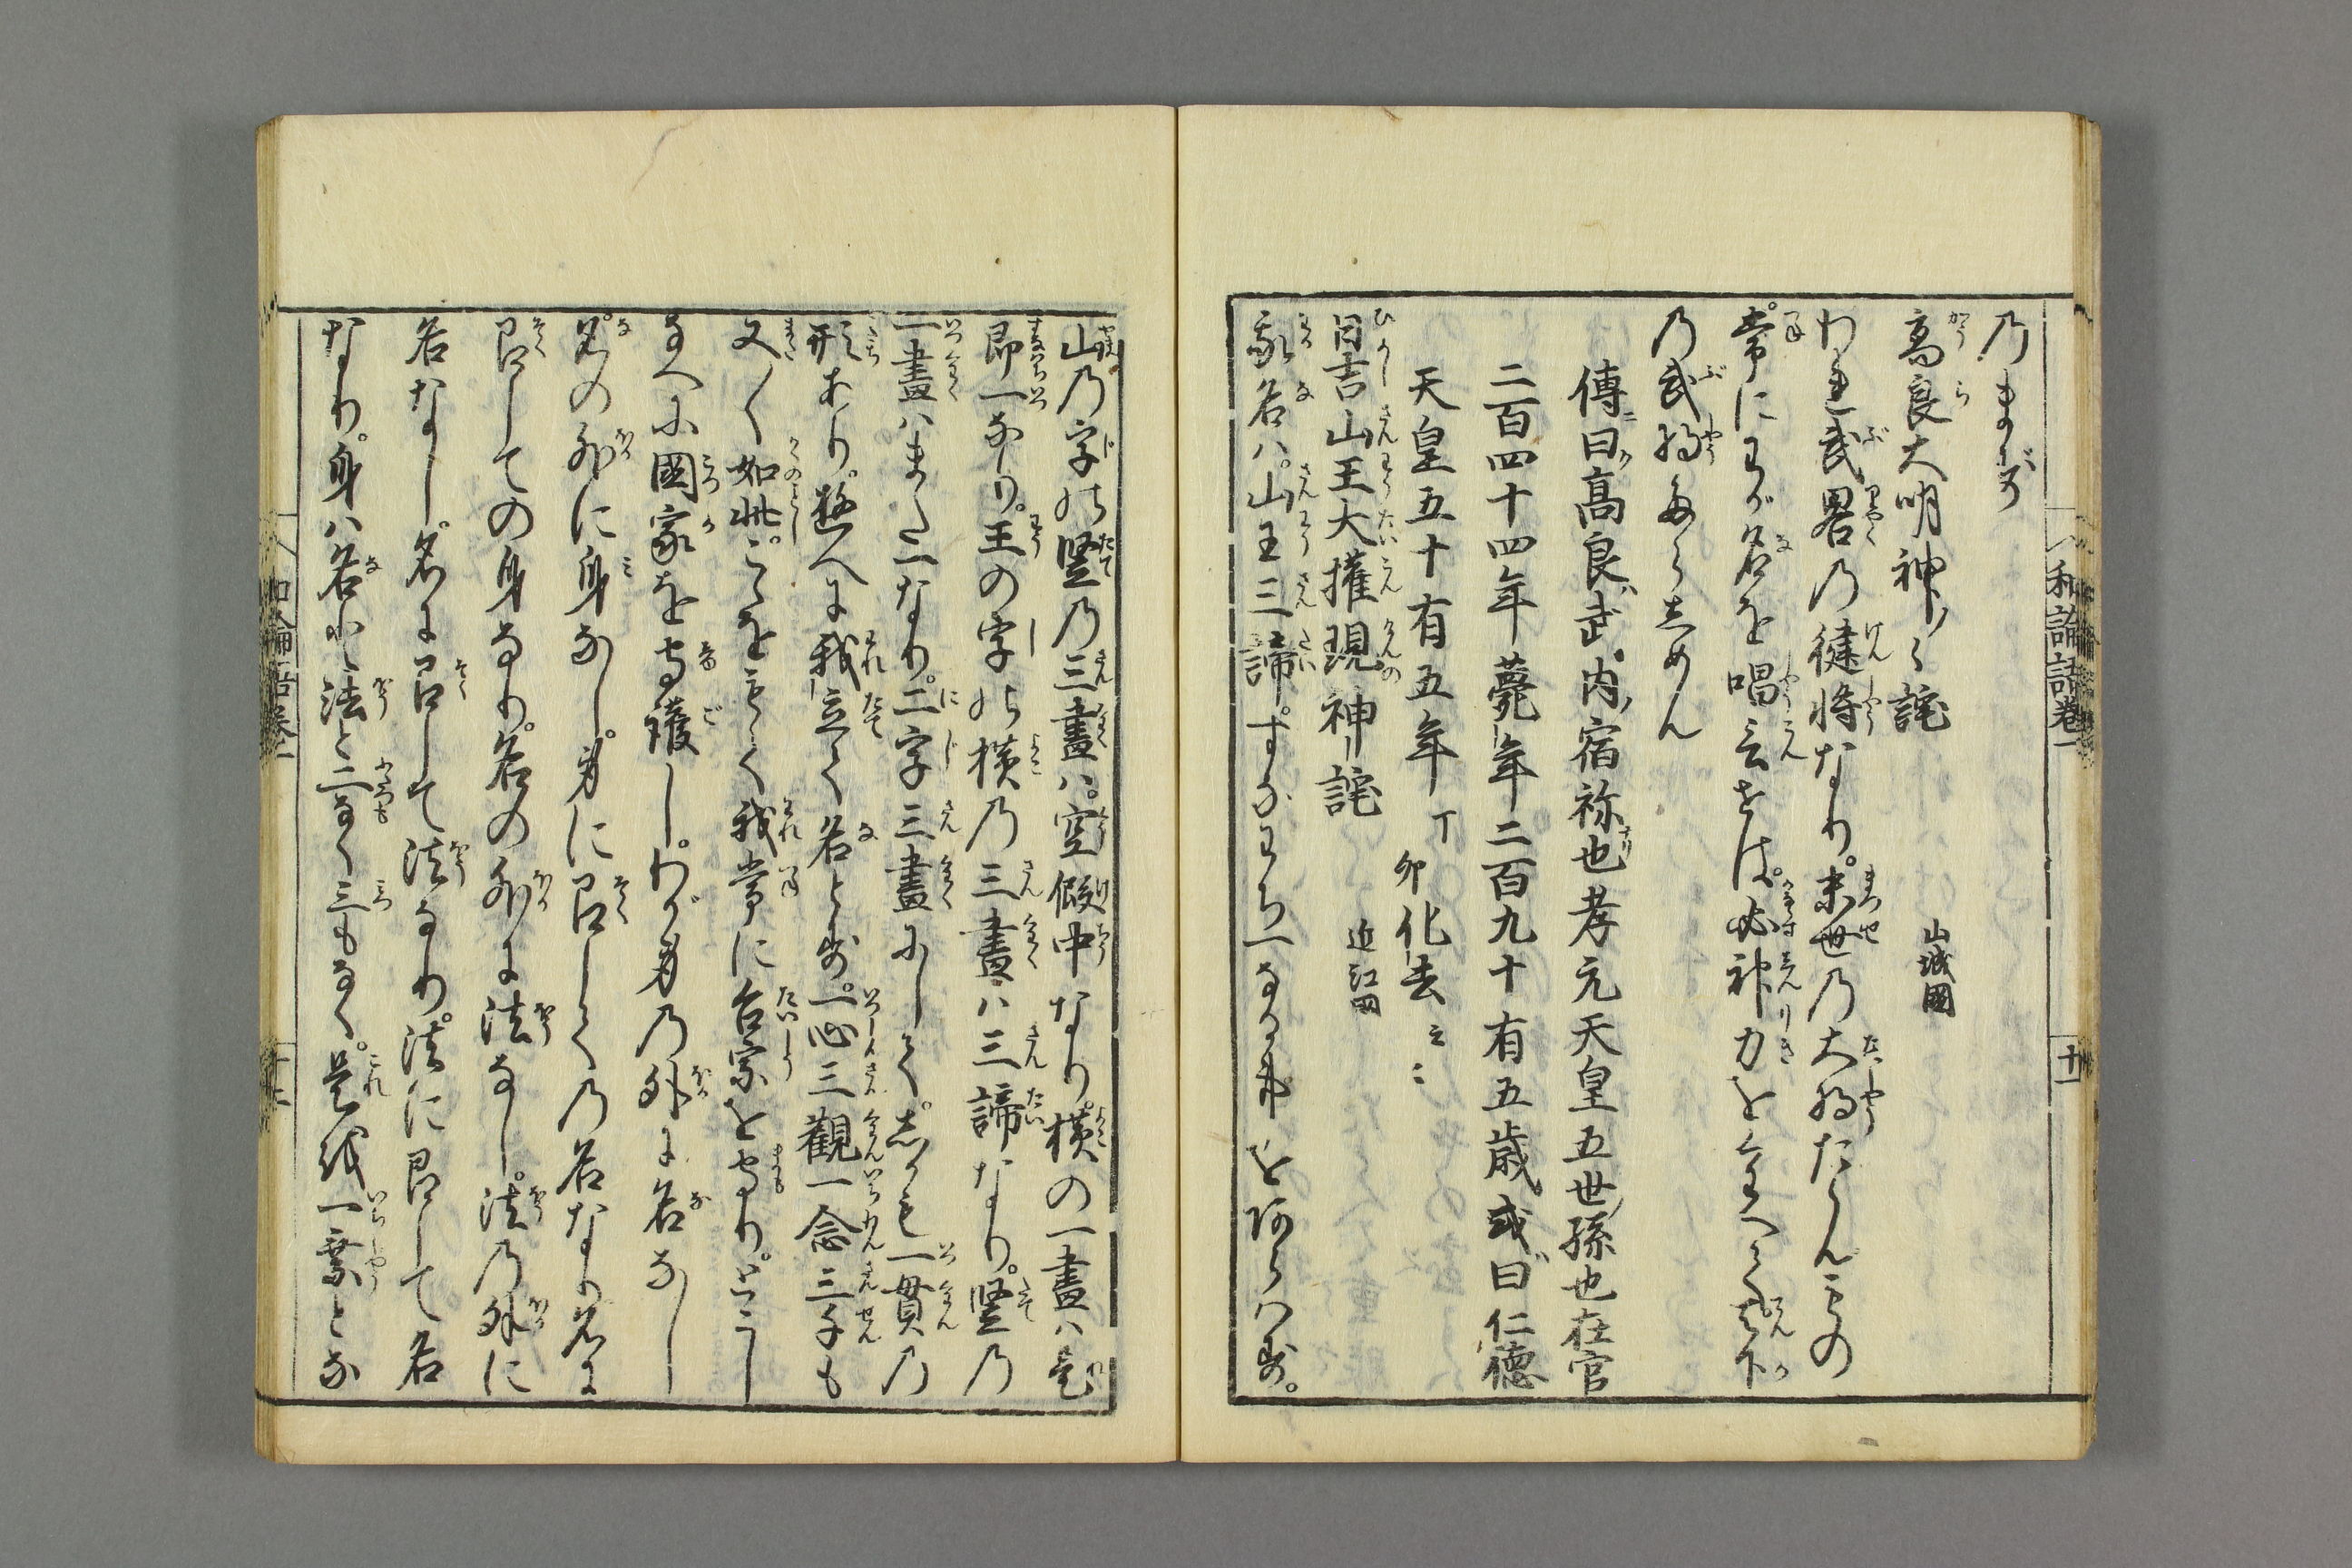 和論語卷一
十一
高良大明神ノ詫 山城國
われ武畧乃健将なり。末世乃大将たらんもの
常にわが名を唱言せば。必神力をくはへて天下
乃武将たらしめん
傳曰高良ハ武内ノ宿祢也孝元天皇五世ノ孫也在官
二百四十四年薨年二百九十有五歳或曰仁德
天皇五十有五年丁卯化去云云
日吉山王大權現神詫 近江国
我名ハ。山王三諦。すなわち一なる事を阿らハす。
山乃字は竪乃三畫ハ。空假中なり。横の一畫ハ是
即一なり。王の字は横乃三畫ハ三諦なり。竪乃
一畫ハまた一なり。二字三畫にして。しかも一貫乃
形あり。故へに我立て名とす。一心三觀一念三千も
又〱如此。こゝをもて我常に台宗を守り。とこし
なへに國家を守護し。わが身乃外に名なし
名の外に身なし。身に即して乃名なり名に
即しての身なり。名の外に法なし。法乃外に
名なし。名に即して法なり。法に即して名
なり。身ハ名と法と二なく三もなく。是を一乗とな
和論語卷一
十二